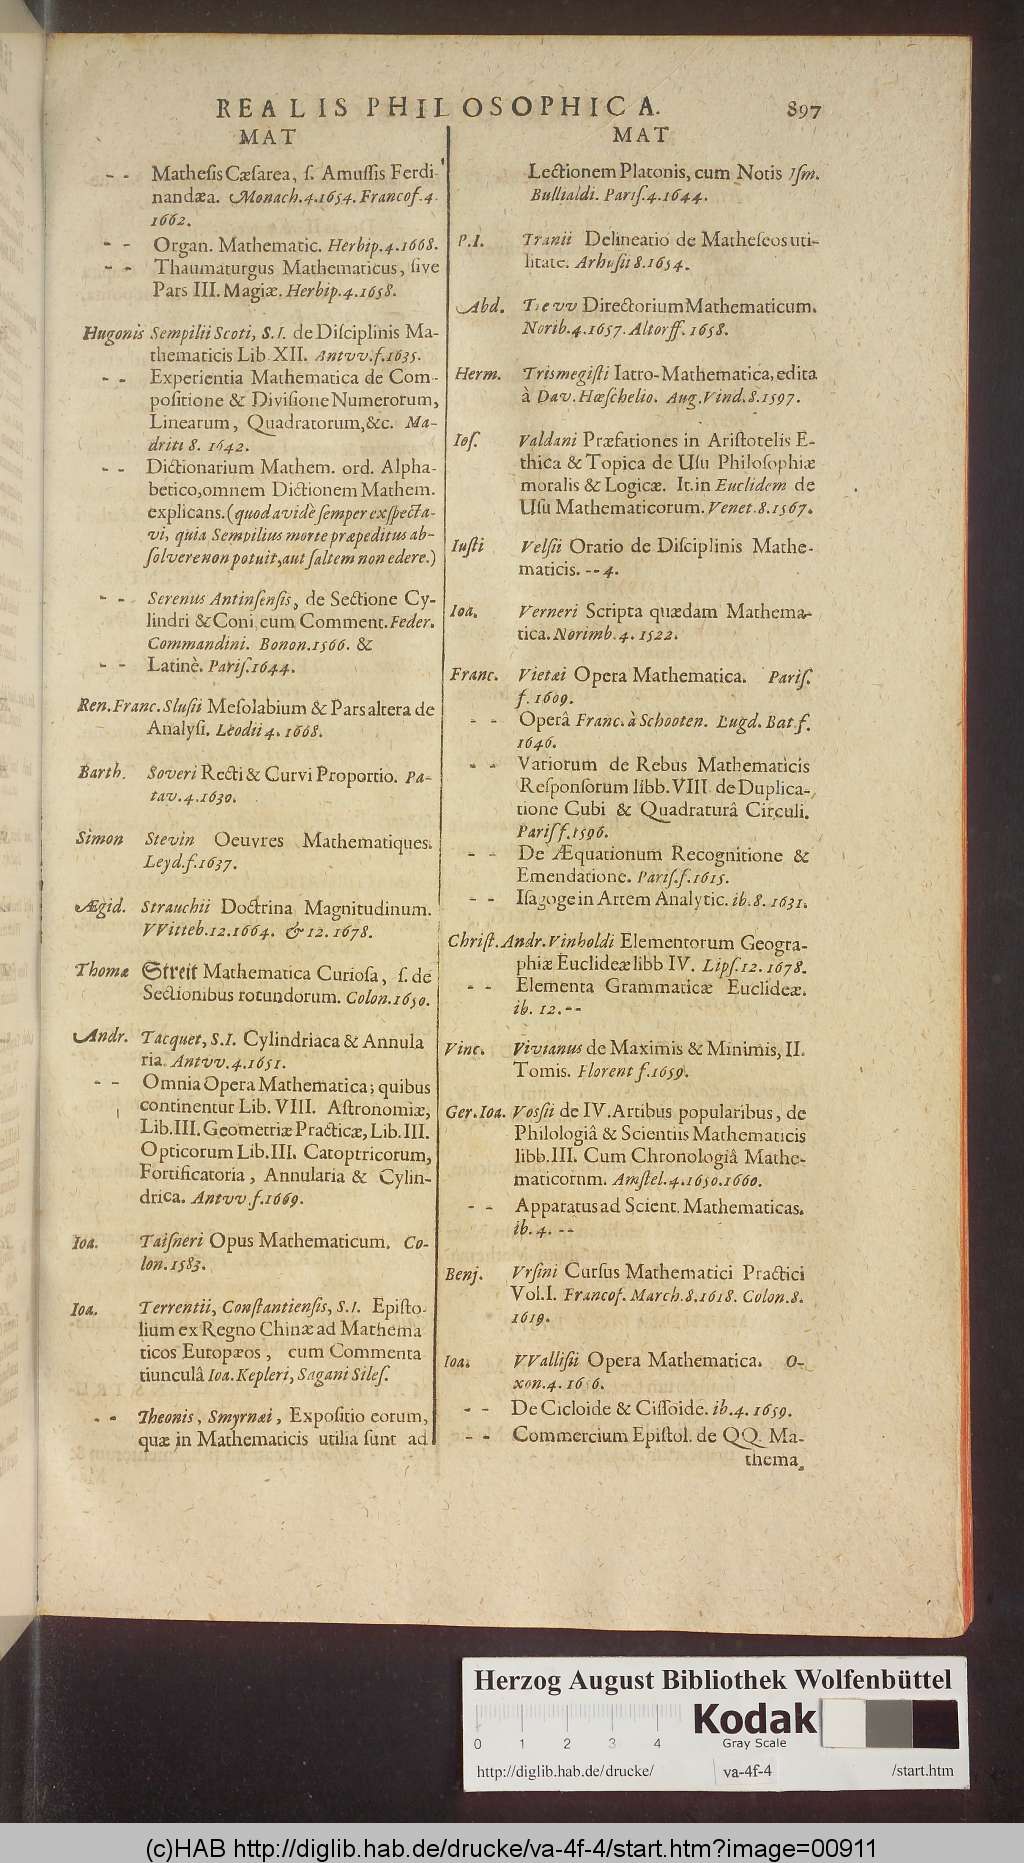 REALIS PHILOSOPHICA. 897
MAT
-- Mathesis Cæsarea, ſ. Amuſſis Ferdi-
nandæa. Monach. 4. 1654. Francof. 4.
1662.
-- Organ. Mathematic. Herbip. 4. 1668.
-- Thaumaturgus Mathematicus, ſive
Pars III. Magiæ. Herbip. 4. 1658.
Hugonis Sempilii Scoti, S. I. de Diſciplinis Ma-
thematicis Lib. XII. Antvv. f. 1635.
-- Experientia Mathematica de Com-
poſitione & Diviſione Numerorum,
Linearum, Quadratorum, &c. Ma-
driti 8. 1642.
-- Dictionarium Mathem. ord. Alpha-
betico, omnem Dictionem Mathem.
explicans. (quod avidè ſemper exſpecta-
vi, quia Sempilius morte præpeditus ab-
ſolvere non potuit, aut ſaltem non edere.)
-- Serenus Antinſenſis, de Sectione Cy-
lindri & Coni cum Comment. Feder.
Commandini. Bonon. 1566. &
-- Latinè. Pariſ. 1644.
Ren. Franc. Sluſii Meſolabium & Pars altera de
Analyſi. Leodii 4. 1668.
Barth. Soveri Recti & Curvi Proportio. Pa-
tav. 4. 1630.
Simon Stevin Oeuvres Mathematiques.
Leyd. f. 1637.
Ægid. Strauchii Doctrina Magnitudinum.
VVitteb. 12. 1664. & 12. 1678.
Thomæ Streit Mathematica Curioſa, ſ. de
Sectionibus rotundorum. Colon. 1650.
Andr. Tacquet, S. I. Cylindriaca & Annula
ria. Antvv. 4. 1651.
-- Omnia Opera Mathematica; quibus
continentur Lib. VIII. Aſtronomiæ,
Lib. III. Geometriæ Practicæ, Lib. III.
Opticorum Lib. III. Catoptricorum,
Fortificatoria, Annularia & Cylin-
drica. Antvv. f. 1669.
Ioa. Taiſneri Opus Mathematicum. Co-
lon. 1583.
Ioa. Terrentii, Conſtantienſis, S. I. Epiſto-
lium ex Regno Chinæ ad Mathema
ticos Europæos, cum Commenta
tiunculâ Ioa. Kepleri, Sagani Sileſ.
-- Theonis, Smyrnæi, Expoſitio eorum,
quæ in Mathematicis utilia ſunt ad
MAT
Lectionem Platonis, cum Notis Iſm.
Bullialdi. Pariſ. 4. 1644.
P. I. Tranii Delineatio de Matheſeos uti-
litate. Arhuſii 8. 1654.
Abd. Trevv Directorium Mathematicum.
Norib. 4. 1657. Altorff. 1658.
Herm. Trismegiſti Iatro-Mathematica, edita
à Dav. Hœſchelio. Aug. Vind. 8. 1597.
Ioſ. Valdani Præfationes in Ariſtotelis E-
thica & Topica de Uſu Philoſophiæ
moralis & Logicæ. It. in Euclidem de
Uſu Mathematicorum. Venet. 8. 1567.
Iuſti Velſii Oratio de Diſciplinis Mathe-
maticis. -- 4.
Ioa. Verneri Scripta quædam Mathema-
tica. Norimb. 4. 1522.
Franc. Vietæi Opera Mathematica. Pariſ.
f. 1609.
-- Operâ Franc. à Schooten. Lugd. Bat. f.
1646.
-- Variorum de Rebus Mathematicis
Reſponſorum libb. VIII. de Duplica-
tione Cubi & Quadraturâ Circuli.
Pariſ f. 1596.
-- De Æquationum Recognitione &
Emendatione. Pariſ. f. 1615.
-- Iſagoge in Artem Analytic. ib. 8. 1631.
Chriſt. Andr. Vinholdi Elementorum Geogra-
phiæ Euclideæ libb IV. Lipſ. 12. 1678.
-- Elementa Grammaticæ Euclideæ.
ib. 12. --
Vinc. Vivianus de Maximis & Minimis, II.
Tomis. Florent f. 1659.
Ger. Ioa. Voſſii de IV. Artibus popularibus, de
Philologiâ & Scientiis Mathematicis
libb. III. Cum Chronologiâ Mathe-
maticorum. Amſtel. 4. 1650. 1660.
-- Apparatus ad Scient. Mathematicas.
ib. 4. --
Benj. Vrſini Curſus Mathematici Practici
Vol. I. Francof. March. 8. 1618. Colon. 8.
1619.
Ioa. VValliſii Opera Mathematica. O-
xon. 4. 1656.
-- De Cicloide & Ciſſoide. ib. 4. 1659.
-- Commercium Epiſtol. de QQ. Ma-
thema
Herzog August Bibliothek Wolfenbüttel
Kodak
Gray Scale
0 1 2 3 4
http://diglib.hab.de/drucke/ va-4f-4 /start.htm
(c)HAB http://diglib.hab.de/drucke/va-4f-4/start.htm?image=00911